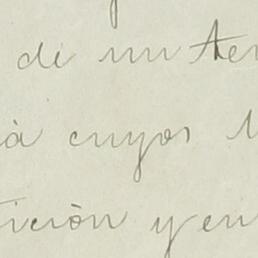 de un
à cuyos
ición y en